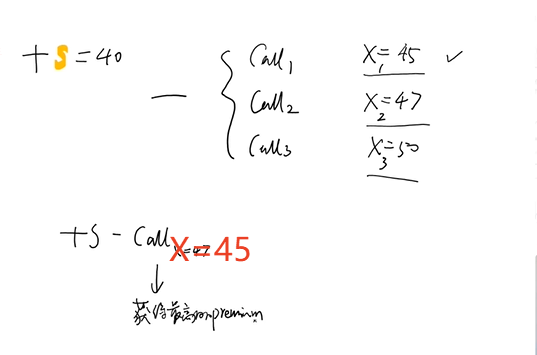 +S=40
— { Call1 X1=45 ✓
Call2 X2=47
Call3 X3=50
+S - Call X=45
↓
获得最高的premium